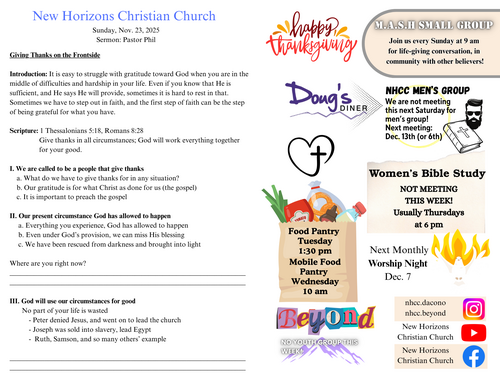 New Horizons Christian Church
Sunday, Nov. 23, 2025
Sermon: Pastor Phil
Giving Thanks on the Frontside
Introduction: It is easy to struggle with gratitude toward God when you are in the
middle of difficulties and hardship in your life. Even if you know that He is
sufficient, and He says He will provide, sometimes it is hard to rest in that.
Sometimes we have to step out in faith, and the first step of faith can be the step
of being grateful for what you have.
Scripture: 1 Thessalonians 5:18, Romans 8:28
Give thanks in all circumstances; God will work everything together
for your good.
I. We are called to be a people that give thanks
a. What do we have to give thanks for in any situation?
b. Our gratitude is for what Christ as done for us (the gospel)
c. It is important to preach the gospel
II. Our present circumstance God has allowed to happen
a. Everything you experience, God has allowed to happen
b. Even under God's provision, we can miss His blessing
c. We have been rescued from darkness and brought into light
Where are you right now?
III. God will use our circumstances for good
No part of your life is wasted
- Peter denied Jesus, and went on to lead the church
- Joseph was sold into slavery, lead Egypt
- Ruth, Samson, and so many others' example
happy
thanksgiving
M.A.S.H SMALL GROUP
Join us every Sunday at 9 am
for life-giving conversation, in
community with other believers!
Doug's
DINER
NHCC MEN'S GROUP
We are not meeting
this next Saturday for
men's group!
Next meeting:
Dec. 13th (or 6th)
Women's Bible Study
NOT MEETING
THIS WEEK!
Usually Thursdays
at 6 pm
Food Pantry
Tuesday
1:30 pm
Mobile Food
Pantry
Wednesday
10 am
Next Monthly
Worship Night
Dec. 7
Beyond
NO YOUTH GROUP THIS
WEEK
nhcc.dacono
nhcc.beyond
New Horizons
Christian Church
New Horizons
Christian Church